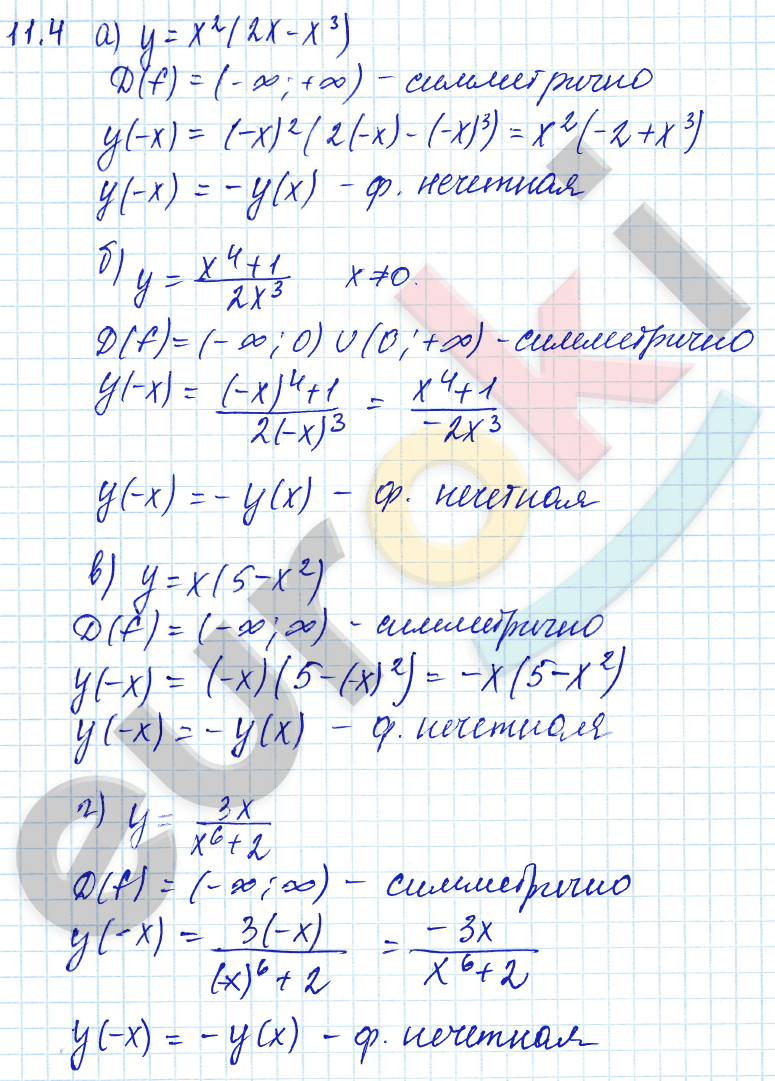 11.4 а) y = x²(2x - x³)
D(f) = (-∞; +∞) - симметрично
y(-x) = (-x)²(2(-x) - (-x)³) = x²(-2 + x³)
y(-x) = -y(x) - ф. нечетная
б) y = (x⁴+1)/(2x³) x≠0.
D(f) = (-∞; 0) ∪ (0; +∞) - симметрично
y(-x) = ((-x)⁴+1)/(2(-x)³) = (x⁴+1)/(-2x³)
y(-x) = -y(x) - ф. нечетная
в) y = x(5-x²)
D(f) = (-∞; ∞) - симметрично
y(-x) = (-x)(5-(-x)²) = -x(5-x²)
y(-x) = -y(x) - ф. нечетная
г) y = 3x/(x⁶+2)
D(f) = (-∞; ∞) - симметрично
y(-x) = 3(-x)/((-x)⁶+2) = -3x/(x⁶+2)
y(-x) = -y(x) - ф. нечетная
euroki